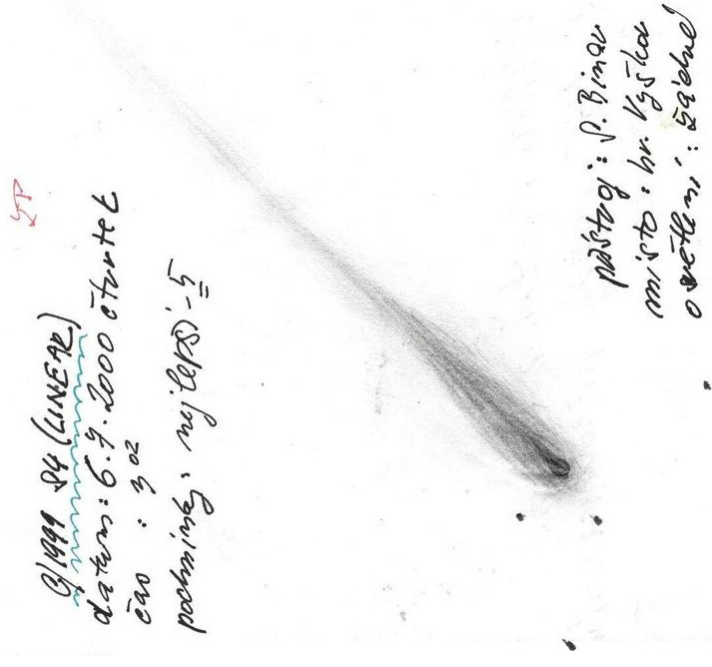 C/1999 S4 (LINEAR)
datum: 6.7.2000 čtvrtek
čas : 3 02
podmínky: nejlepší - 5
přístroj: S. Binar
místo: hv. Vyška
osvětlení: žádné